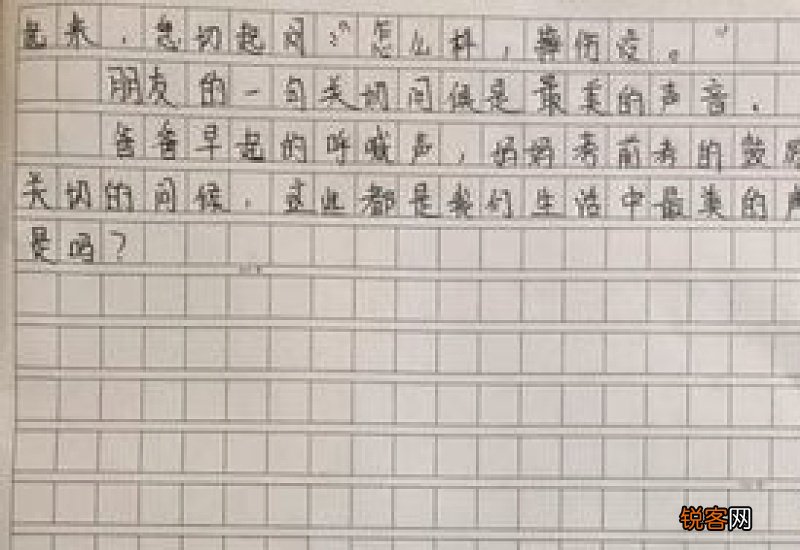 起来，急切起问：“怎么样，摔伤没。”
朋友的一句关切问候是最美的声音．
爸爸早起的呼喊声，妈妈考前考的鼓
关切的问候，这些都是我们生活中最美的声
是吗？
锐客网